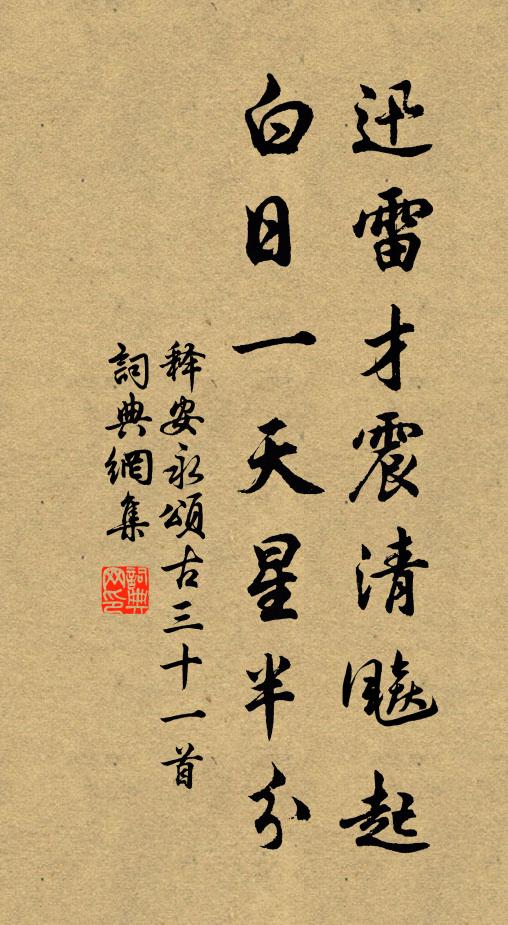 迅雷才震清飈起
白日一天星半分
释安永頌古三十一首
詞典網集
詞典網印